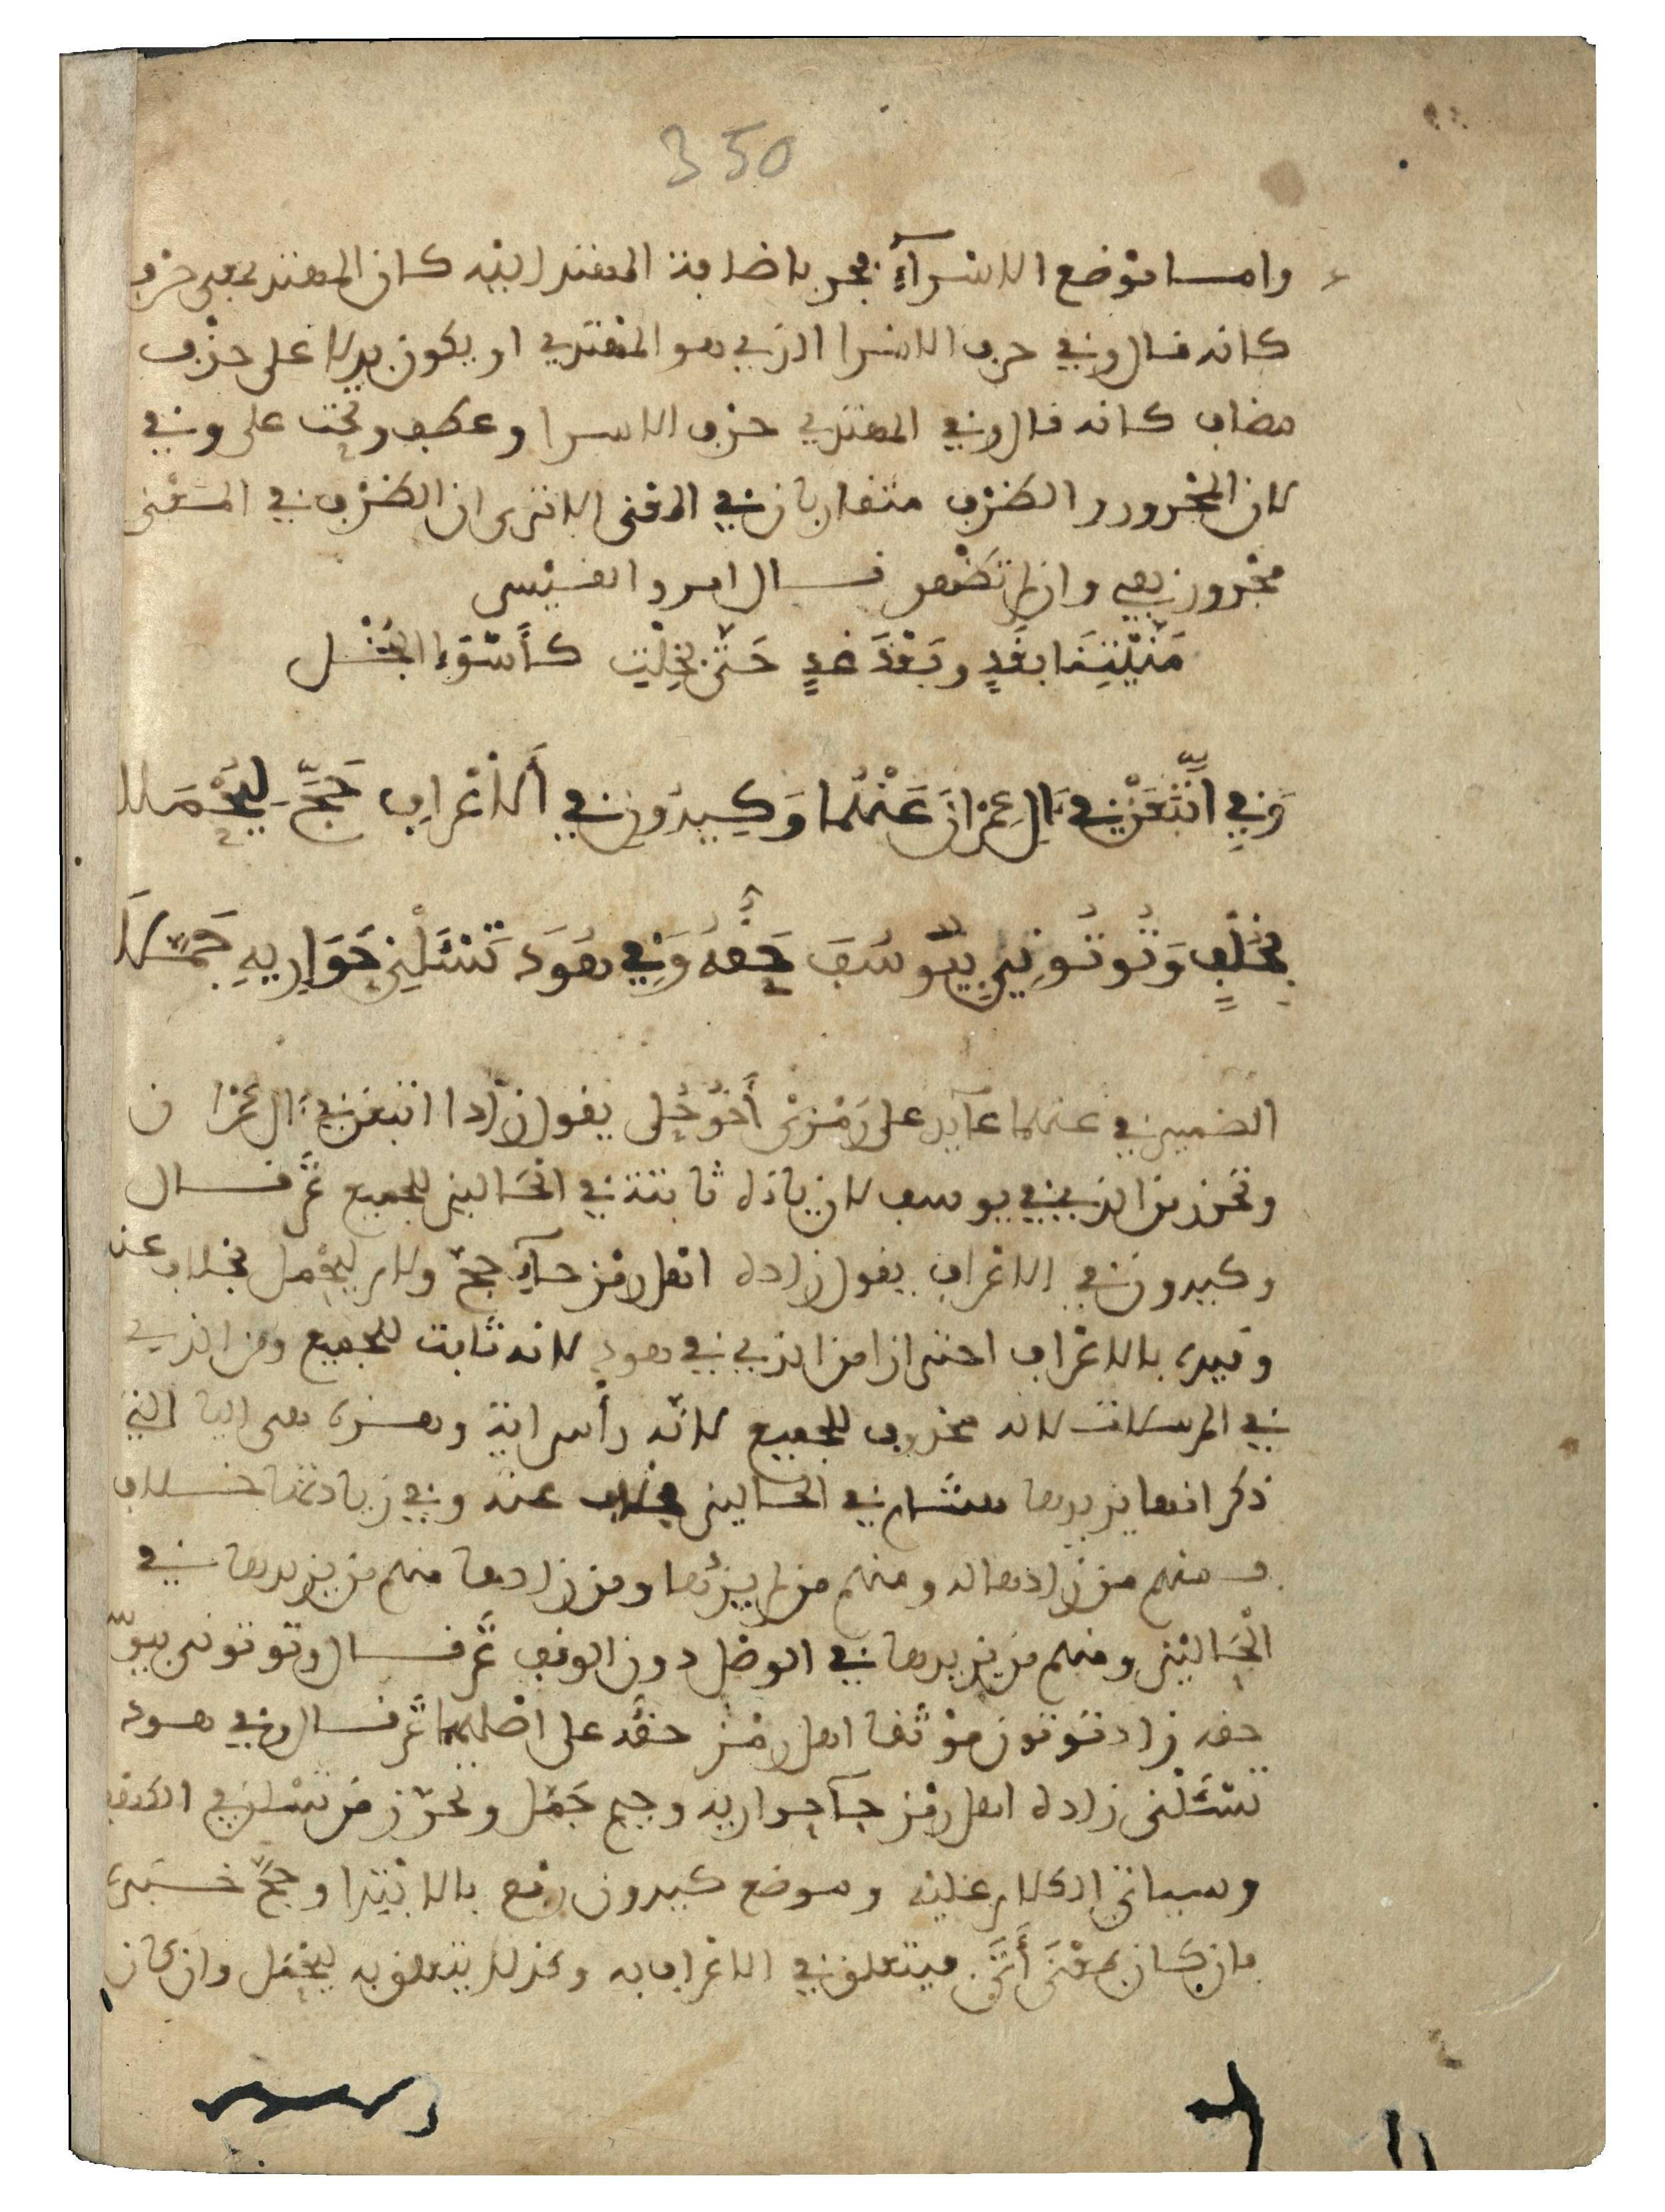 350
واما موضع الاسرآء فجر باضافة المهتد اليه كان المهتد بمعنى حرف
كانه قال وفي حرف الاسرا الذي هو المهتدي او يكون بدلا على حذف
مضاف كانه قال وفي المهتدي حرف الاسرا وعطف وتحت على وفي
لان المجرور والظرف متقاربان في المعنى الا ترى ان الظرف في المعنى
مجرور بفي وان لم تظهر قال امرؤ القيس
مَنَّيْتِنَا بِغَدٍ وبَعْدَ غَدٍ حَتَّى بَخِلْتِ كَأَسْوَءِ البُخْل
وَفِي اتَّبَعَنْ فِي ءَالِ عِمْرَانَ عَنْهُمَا وَكِيدُونِ فِي الَاعْرَافِ حَجَّ لِيُحْمَلا
بِخُلْفٍ وَتُوتُونِي بِيُوسُفَ حَقُّهُ وَفِي هُودَ تَسْئَلْنِي حَوَارِيهِ جَمَّلَا
الضمير في عنهما عآيد على رَمْزَيْ أَخُو حُلى يقول زادا اتبعن في ءال عمران
وتحرز من الذي في يوسف لان ياءه ثابتة في الحالين للجميع ثم قال
وكيدون في الاعراف يقول زاده اهل رمز حآء حج ولام ليحمل بخلاف عنه
وقيده بالاعراف احترازا من الذي في هود لانه ثابت للجميع ومن الذي
في المرسلات لانه محذوف للجميع لانه رأس اية وهذه هي اليا التي
ذكر انها يزيدها هشام في الحالين بخلاف عنه وفي زيادتها خلاف
فمنهم من زادها له ومنهم من لم يزدها ومن زادها منهم من يزيدها في
الحالين ومنهم من يزيدها في الوصل دون الوقف ثم قال وتوتوني بيو
حقه زاد توتون موثقا اهل رمز حقه على اصلهما ثم قال وفي هود
تسئلني زاده اهل رمز حآ حواريه وجيم جمل وتحرز من تسئلني الكهف
وسياتي الكلام عليه وموضع كيدون رفع بالابتدا وحج خبره
فان كان بمعنى أَتَى فيتعلق في الاعراف به وكذلك يتعلق به ليحمل وان كان